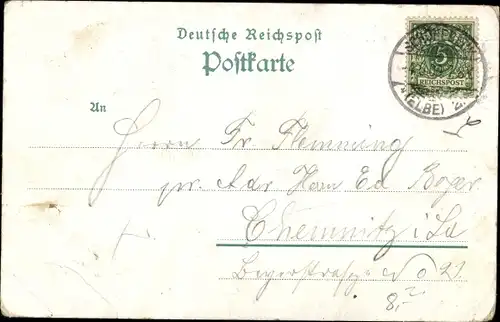 Deutsche Reichspost
Postkarte
5
REICHSPOST
(ELBE)
An
Herrn Fr. Flemming
pr. Adr. Herrn Ed Boger
Chemnitz i/Sa
No 21
8,-